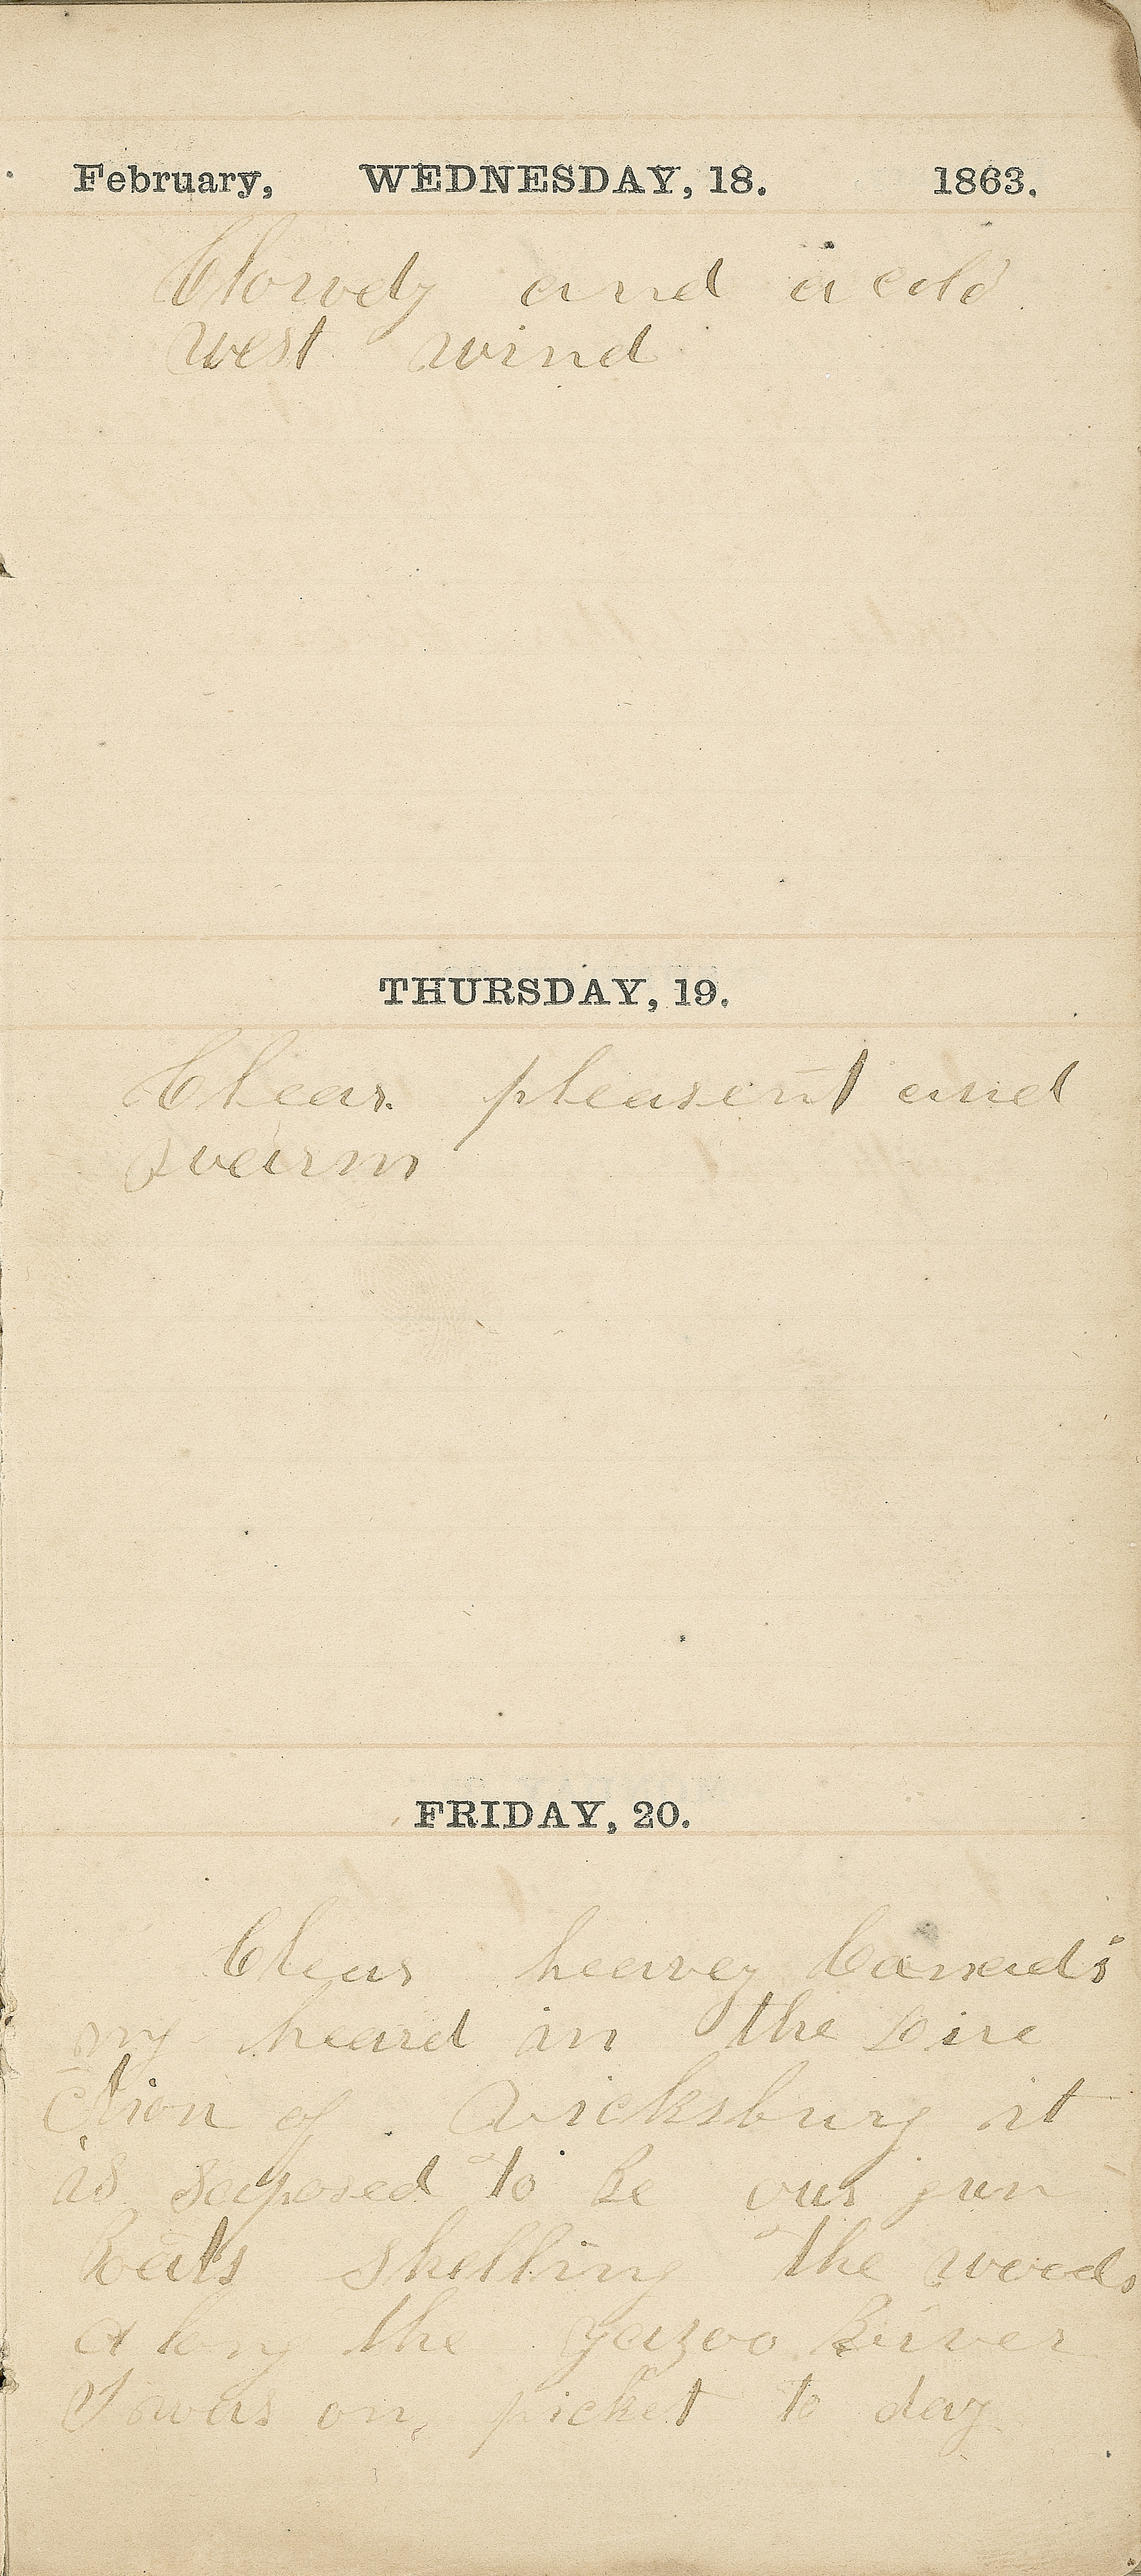 February, WEDNESDAY, 18. 1863.
Clowdy and a cold
west wind
THURSDAY, 19.
Clear pleasent and
warm
FRIDAY, 20.
Clear heavey Canad
ing heard in the Dire
ction of Vicksburg it
is suposed to be our gun
Boats shelling the woods
along the yazoo River
I was on picket to day